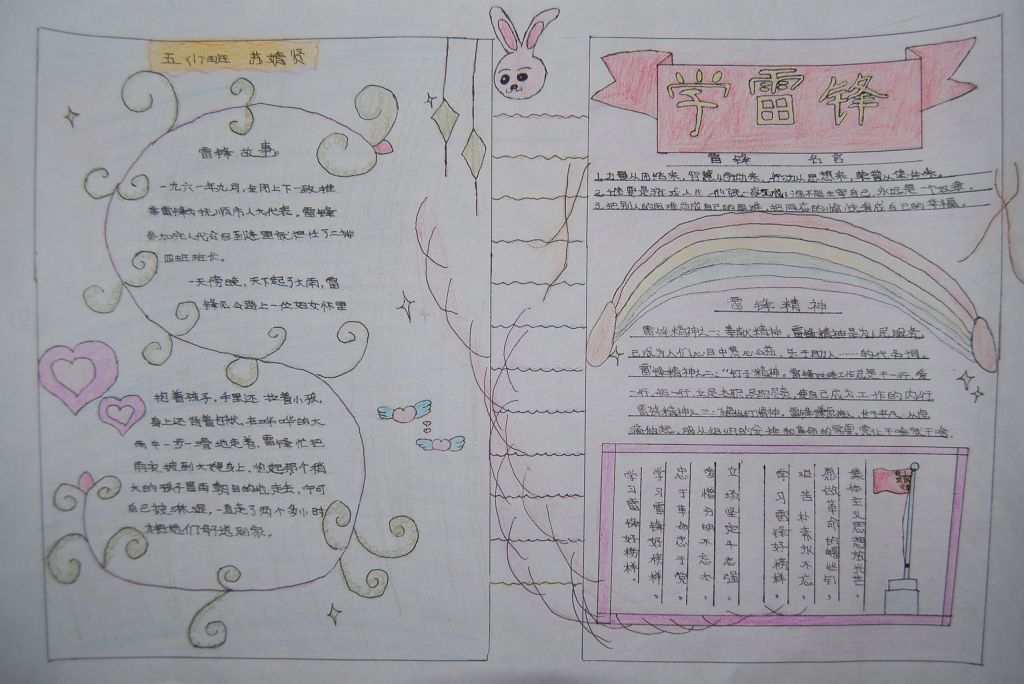 五(1)班 苏婧贤
雷锋故事。
一九六一年九月,全团上下一致推
荐雷锋为抚顺市人大代表。雷锋
参加完人代会回到连里就担任了二排
四班班长。
一天傍晚,天下起了大雨,雷
锋见公路上一位妇女怀里
抱着孩子,手里还拉着小孩,
身上还背着包袱,在哗哗的大
雨中一步一滑地走着,雷锋忙把
雨衣披到大嫂身上,抱起那个稍
大的孩子冒雨朝目的地走去,宁可
自己被淋湿,一直走了两个多小时
才把她们母子送到家。
学雷锋
雷锋 名言
1.力量从团结来,智慧从劳动来,行动从思想来,荣誉从集体来。
自己,永远是一个奴隶。
3.把别人的困难当成自己的困难,把同志的愉快看成自己的幸福。
雷锋精神
雷锋精神之一:奉献精神,雷锋精神是为人民服务
已成为人们心目中热心公益,乐于助人……的代名词。
雷锋精神之二:“钉子”精神。雷锋对待工作总是干一行,爱
一行,钻一行,立足本职,尽职尽责,使自己成为工作的内行
雷锋精神之三:“螺丝钉”精神,
服从组织的安排和革命的需要,党让干啥就干啥。
学习雷锋好榜样,
忠于革命忠于党,
爱憎分明不忘本,
立场坚定斗志强
学习雷锋好榜样,
艰苦朴素永不忘,
愿做革命的螺丝钉,
集体主义思想放光芒。
学习雷锋好榜样。